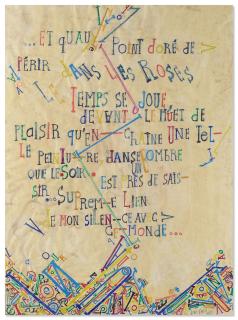 ...ET QUAU POINT DORÉ DE
PÉRIR
LE DANS LES ROSES
TEMPS SE JOUE
DEVANT LE MUET DE
PLAISIR QU'EN—CHAINE UNE TEL-
LE PEINTURE DANSE OMBRE
QUE LE SOIR UN
EST PRÈS DE SAIS-
SIR ... SUPREM-E LIEN
E MON SILEN-CE AVEC
CE-MONDE...